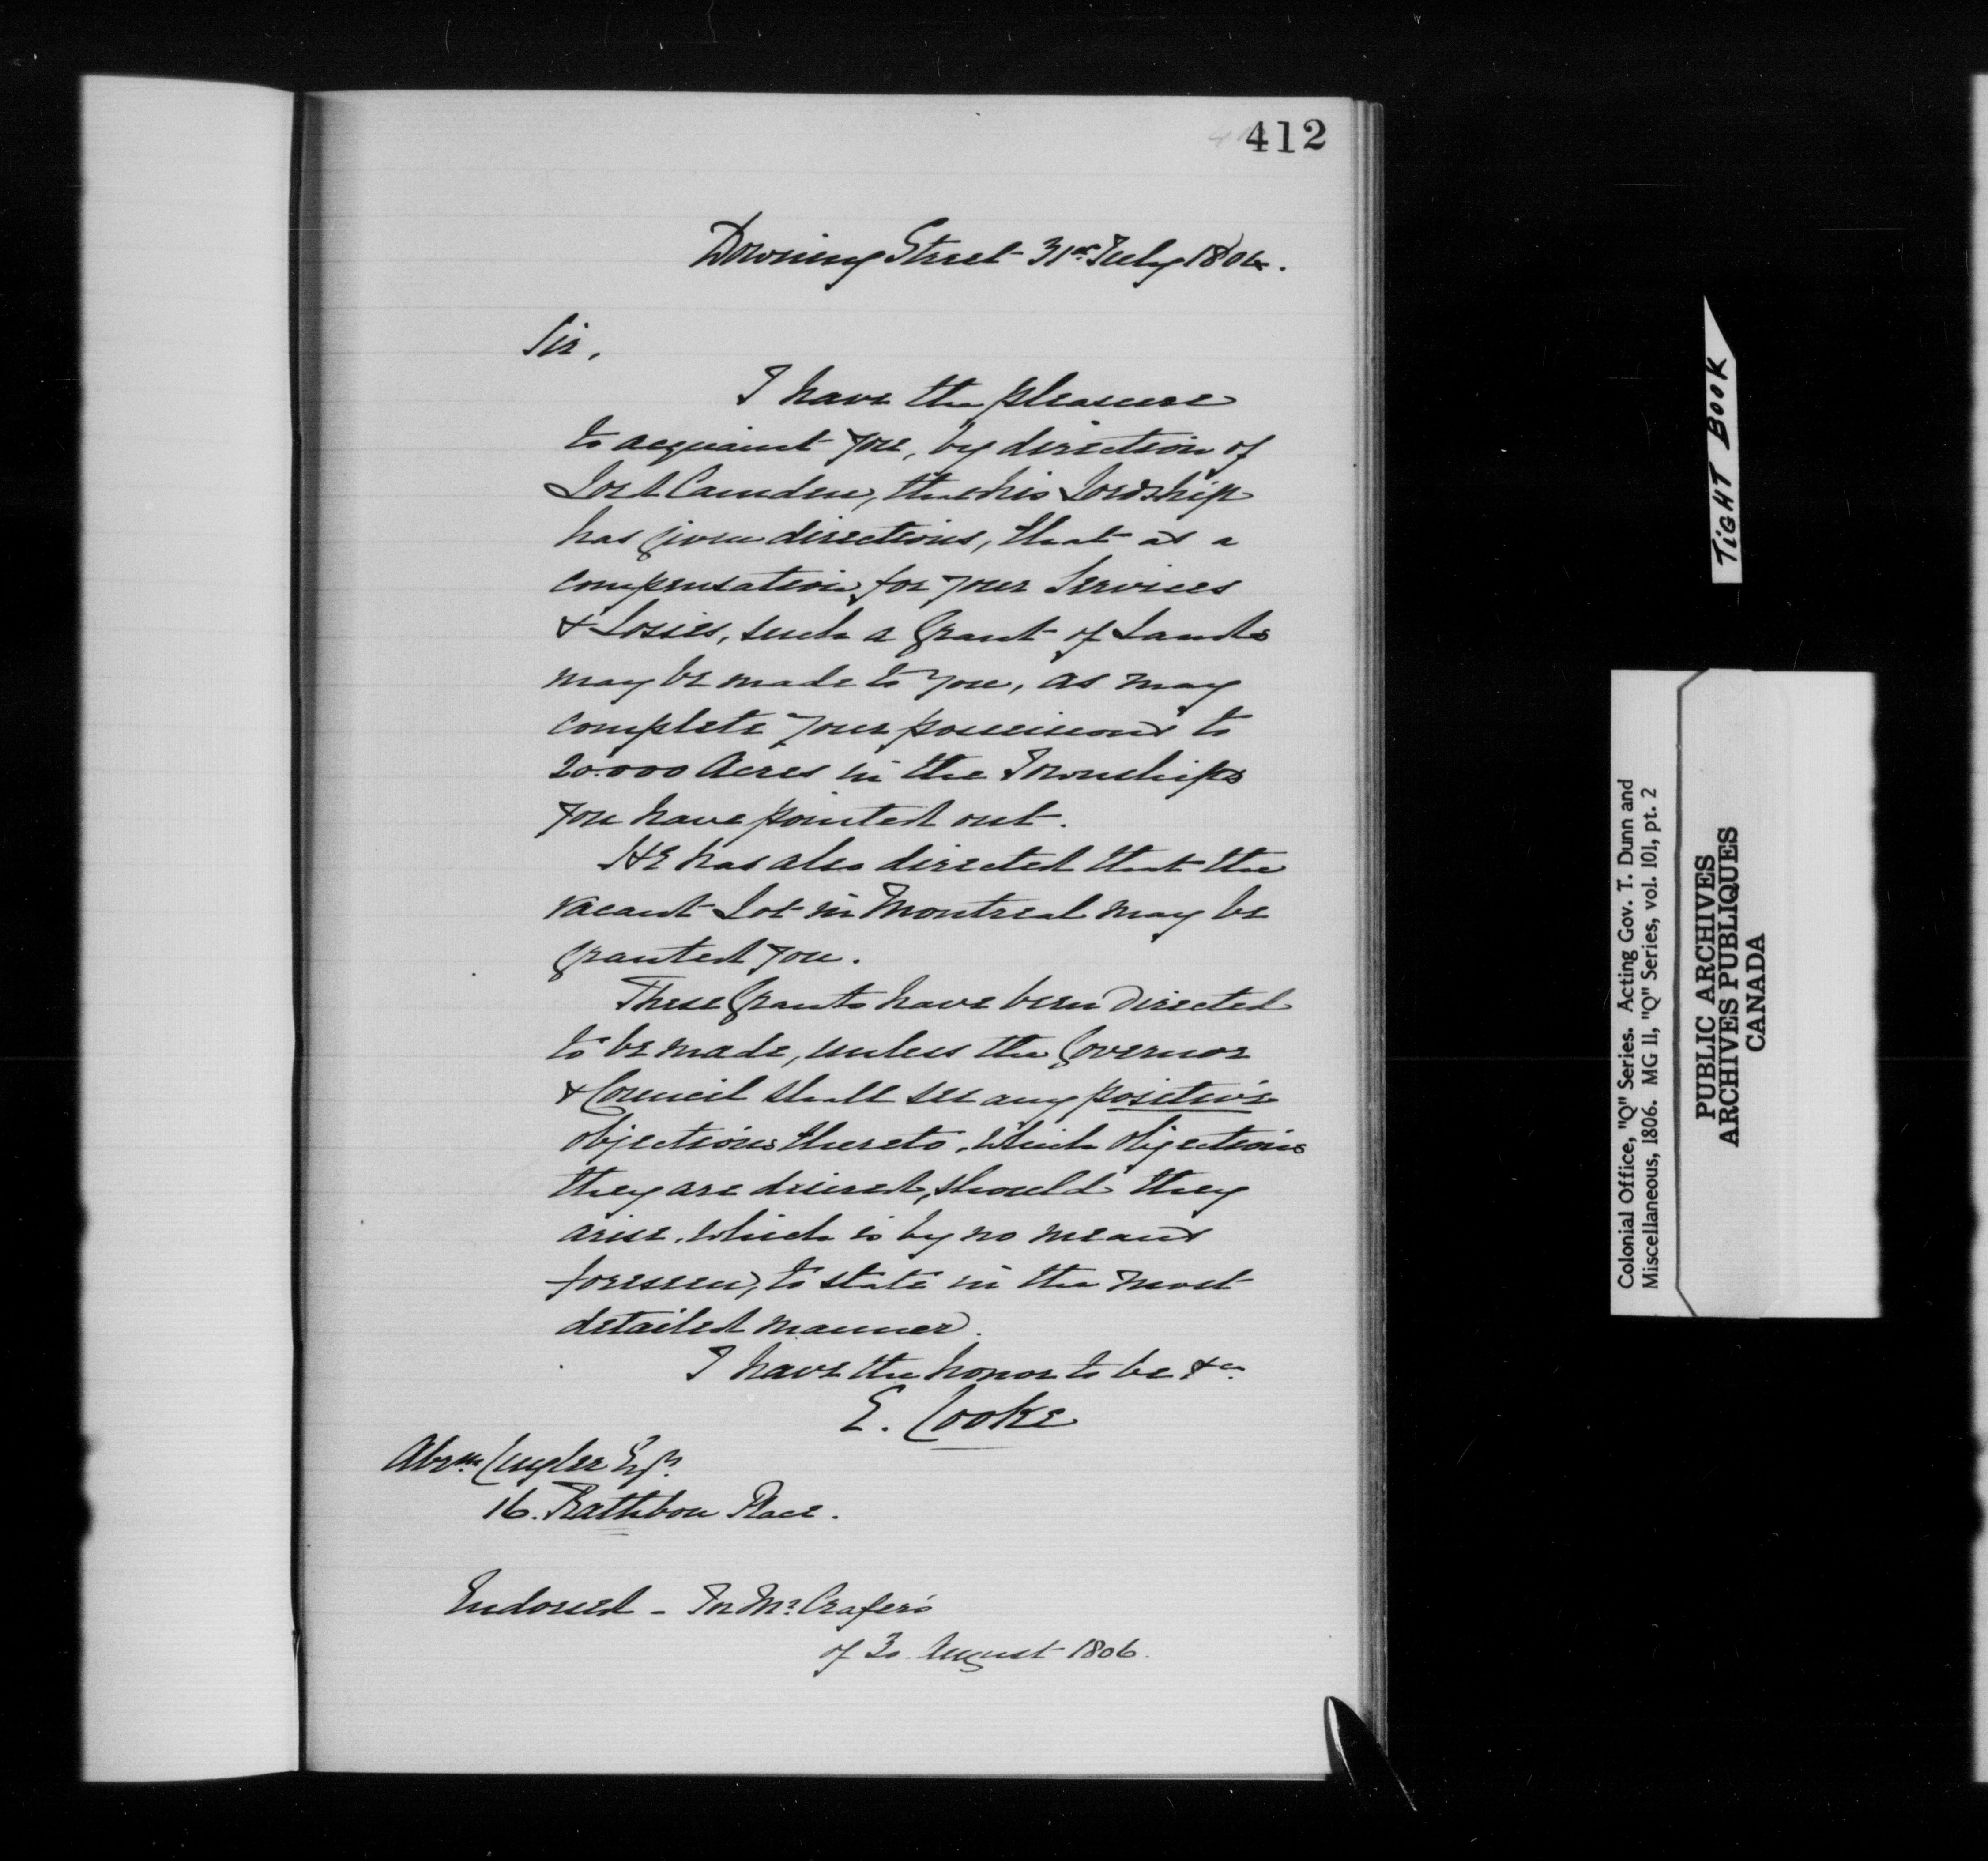 412
Downing Street 31st July 1804.
Sir,
I have the pleasure
to acquaint you, by direction of
Lord Camden, that his Lordship
has given directions, that as a
compensation for your Services
& Losses, such a Grant of Lands
may be made to you, as may
complete your possessions to
20.000 Acres in the Townships
you have pointed out.
He has also directed that the
vacant Lot in Montreal may be
granted you.
These Grants have been directed
to be made, unless the Governor
& Council shall see any positive
objections thereto, which objections
they are desired, should they
arise, which is by no means
foreseen, to state in the most
detailed manner.
I have the honor to be &c
E. Cooke
Abrm Cuyler Esqr
16. Rathbon Place.
Endorsed - In Mr Crafer's
of 30 August 1806.
TIGHT BOOK
Colonial Office, "Q" Series. Acting Gov. T. Dunn and
Miscellaneous, 1806. MG 11, "Q" Series, vol. 101, pt. 2
PUBLIC ARCHIVES
ARCHIVES PUBLIQUES
CANADA